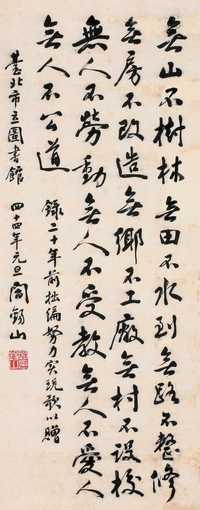 無山不樹林無田不水到無路不整修
無房不改造無鄉不工廠無村不設校
無人不勞動無人不受教無人不愛人
無人不公道 錄二十年前拙編努力實現歌以贈
臺北市立圖書館 四十四年元旦 閻錫山